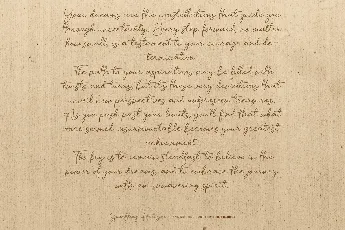 Your dreams are the unyielding thing that guide you
through uncertainty. Every step forward, no matter
how small, is a testament to your courage and de
termination.
The path to your aspirations may be filled with
twists and turns, but it's these very deviations that
new perspectives and
As you push past your limits, you'll find that what
once seemed insurmountable becomes your greatest
achievement.
The key is to remain steadfast to believe in the
power of your dreams, and to embrace the journey
with an unwavering spirit.